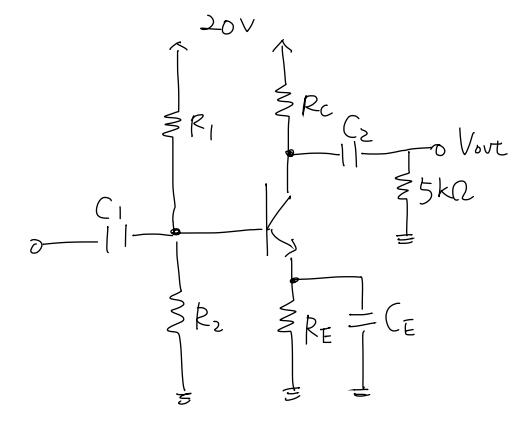 20V
R1
RC
C2
Vout
5kΩ
C1
R2
RE
CE